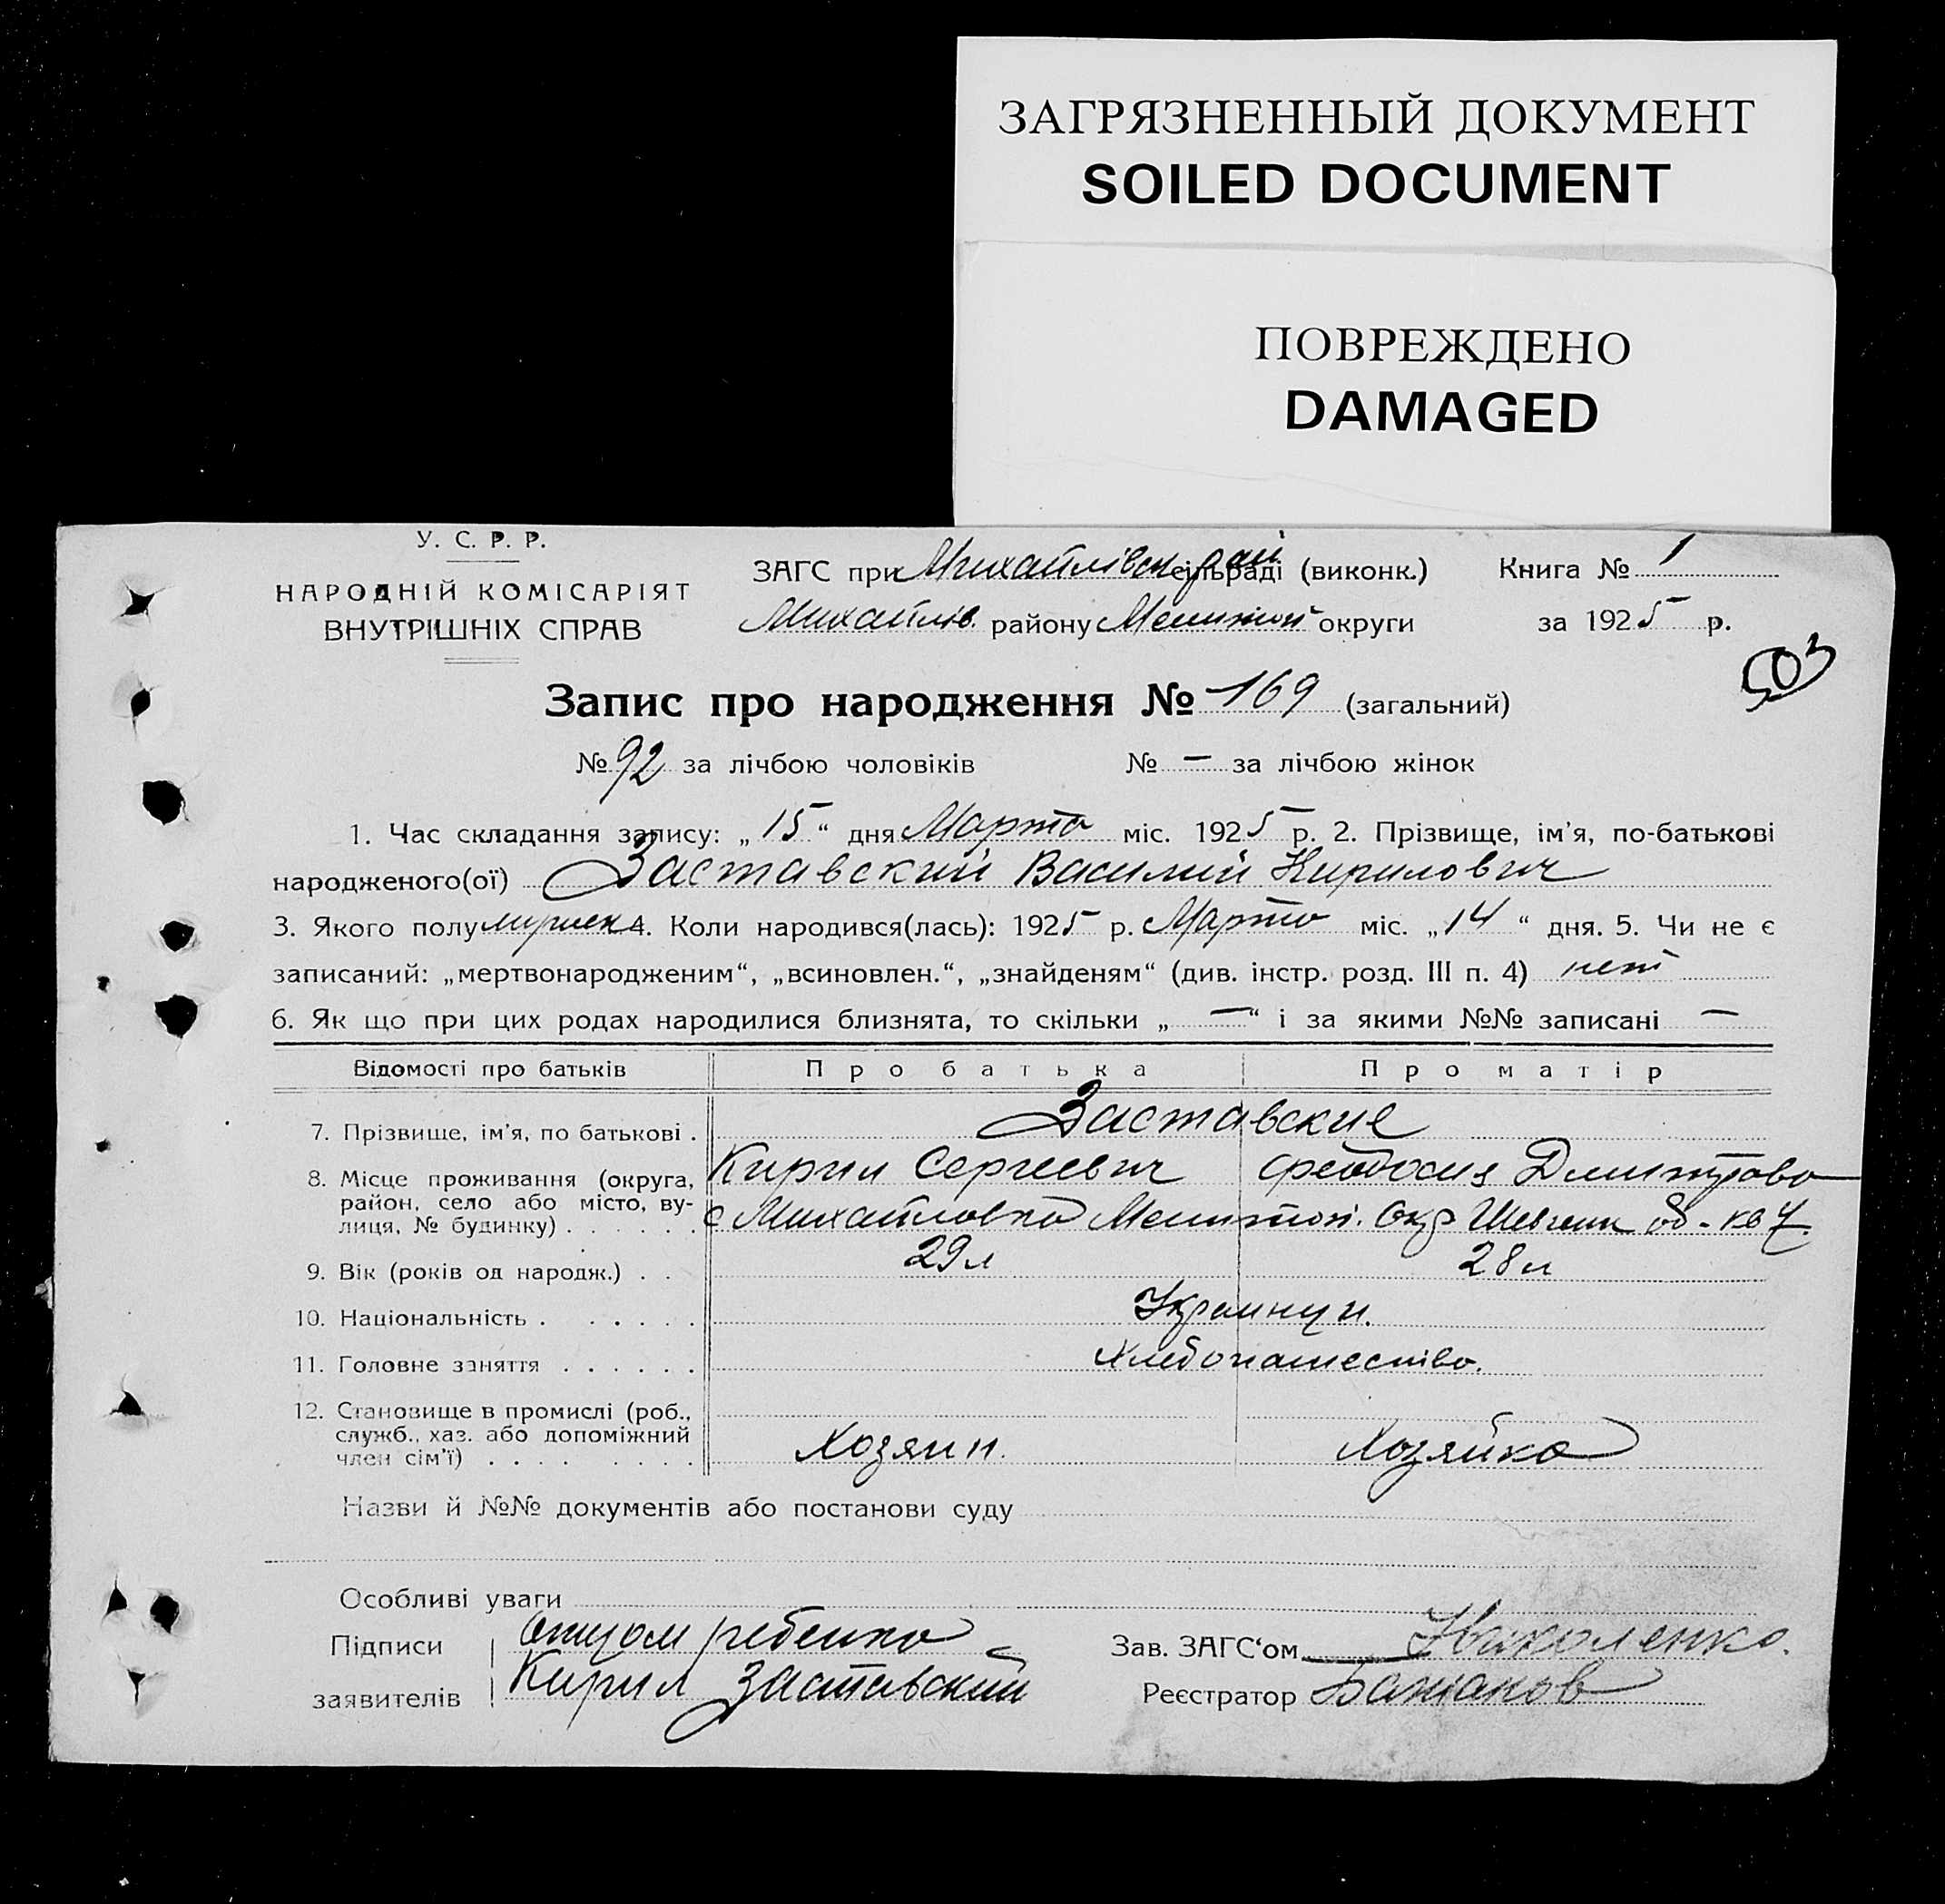 ЗАГРЯЗНЕННЫЙ ДОКУМЕНТ
SOILED DOCUMENT
ПОВРЕЖДЕНО
DAMAGED
У. С. Р. Р.
НАРОДНІЙ КОМІСАРІЯТ
ВНУТРІШНІХ СПРАВ
ЗАГС при Михайлівск раді сільраді (виконк.) Книга № 1
Михайлів. району Мелитоп округи за 1925 р.
503
Запис про народження № 169 (загальний)
№ 92 за лічбою чоловіків № — за лічбою жінок
1. Час складання запису: „15“ дня Марта міс. 1925 р. 2. Прізвище, ім'я, по-батькові
народженого(ої) Заставский Василий Кирилович
3. Якого полу мужеск 4. Коли народився(лась): 1925 р. Марта міс. „14“ дня. 5. Чи не є
записаний: „мертвонародженим“, „всиновлен.“, „знайденям“ (див. інстр. розд. III п. 4) нет
6. Як що при цих родах народилися близнята, то скільки „—“ і за якими №№ записані —
Відомості про батьків Про батька Про матір
7. Прізвище, ім'я, по батькові . Заставские
Кирил Сергеевич Феодосия Дмитрова
8. Місце проживання (округа, район, село або місто, вулиця, № будинку) . . . . . . с Михайловка Мелитоп. Окр Шевченк об-кв 7.
9. Вік (років од народж.) . . 29 л 28 л
10. Національність . . . . . . Украинци.
11. Головне заняття . . . . . . Хлебопашество.
12. Становище в промислі (роб.,
служб., хаз. або допоміжний
член сім'ї) . . . . . . . . Хозяин. Хозяйка
Назви й №№ документів або постанови суду
Особливі уваги
Підписи Отцом ребенка Зав. ЗАГС'ом Николенко.
заявителів Кирил Заставский Реєстратор Бажанов